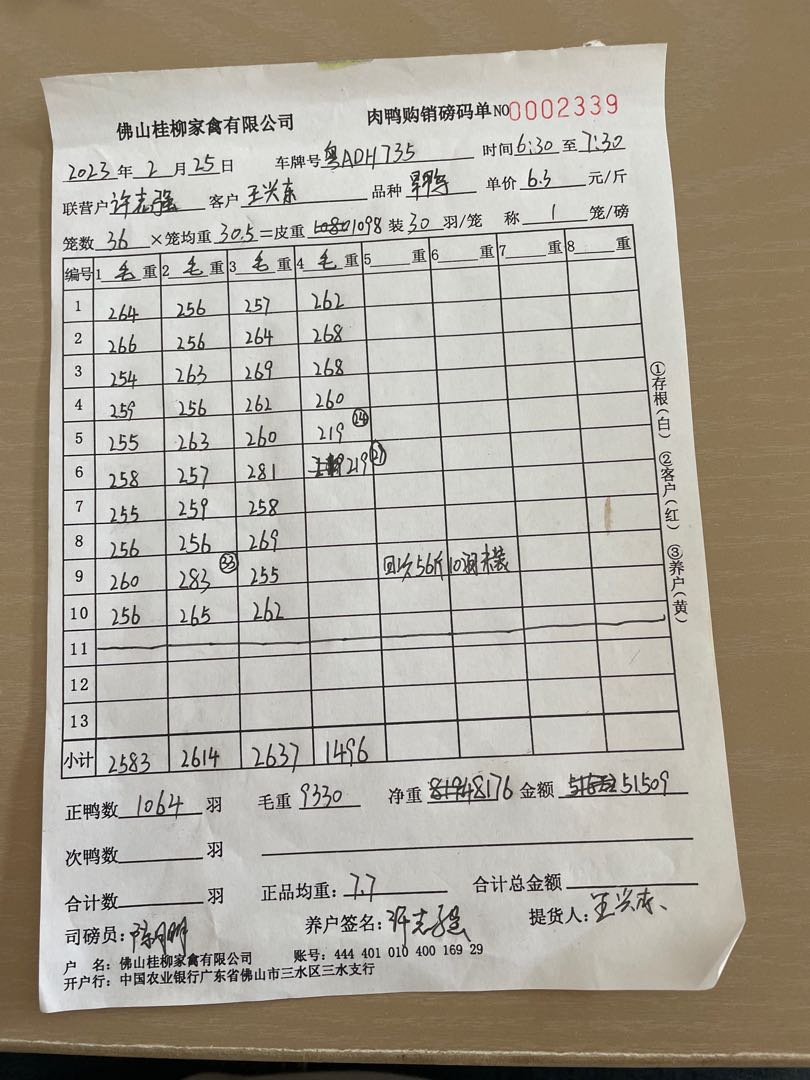 佛山桂柳家禽有限公司 肉鸭购销磅码单NO0002339
2023年2月25日 车牌号粤ADH735 时间6:30至7:30
联营户许志强 客户王兴东 品种 单价6.3元/斤
笼数36×笼均重30.5=皮重1098装30羽/笼 称1笼/磅
编号 1毛重 2毛重 3毛重 4毛重 5重 6重 7重 8重
1 264 256 257 262
2 266 256 264 268
3 254 263 269 268
4 259 256 262 260
5 255 263 260 219 ㉔
6 258 257 281 219 ㉗
7 255 259 258
8 256 256 269
9 260 283 ㉝ 255 56斤
10 256 265 262
11
12
13
小计 2583 2614 2637 1496
正鸭数1064羽 毛重9330 净重8176 金额51509
次鸭数 羽
合计数 羽 正品均重:7.7 合计总金额
司磅员: 养户签名:许志强 提货人:王兴东
户 名:佛山桂柳家禽有限公司 账号:444 401 010 400 169 29
开户行:中国农业银行广东省佛山市三水区三水支行
①存根(白) ②客户(红) ③养户(黄)